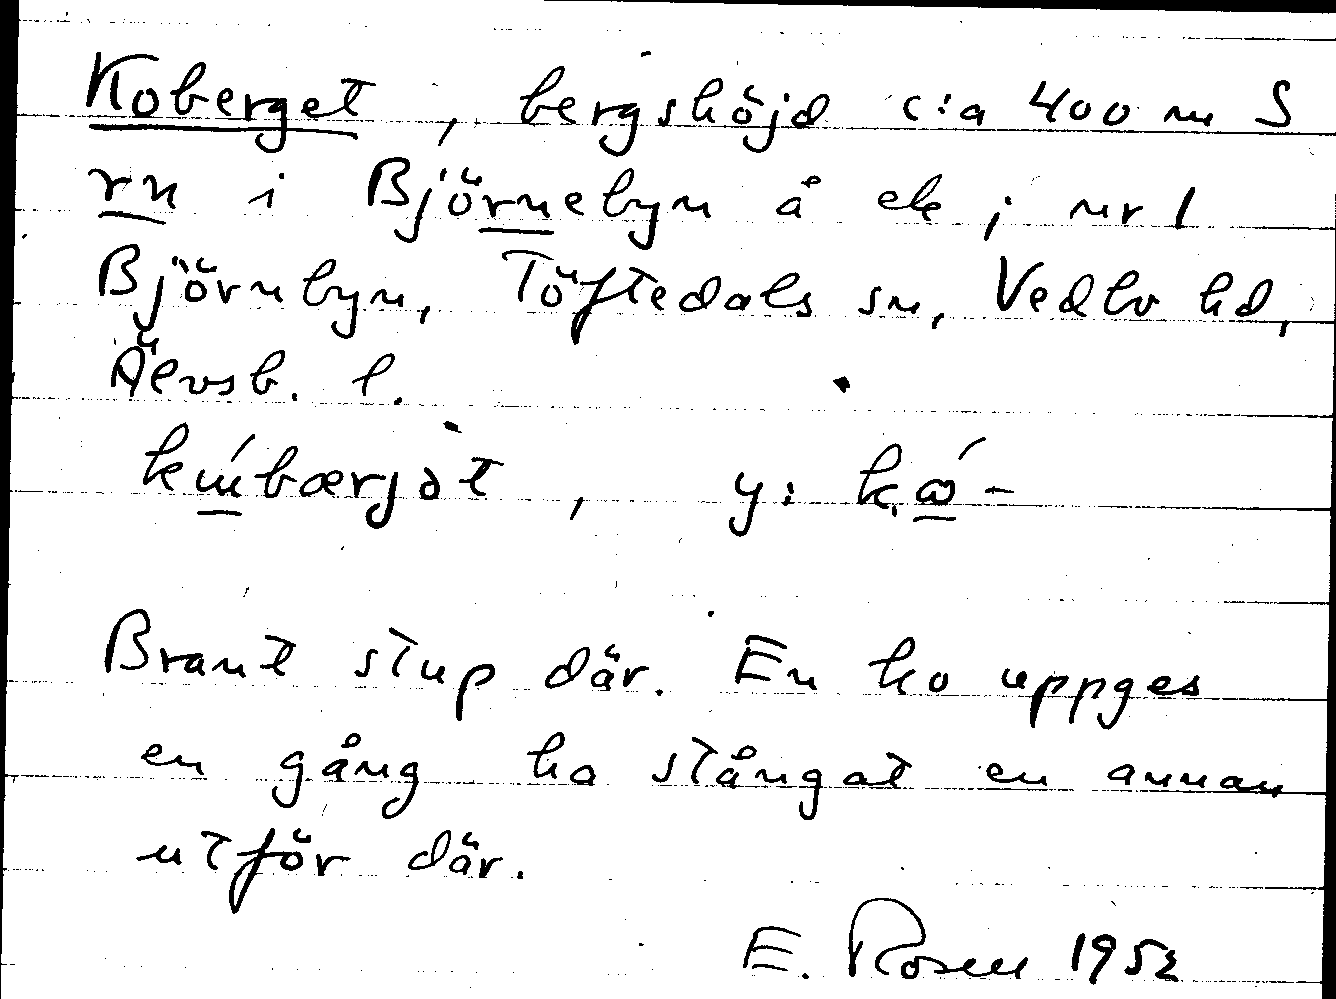 Koberget, bergshöjd c:a 400 m S
rn i Björnebyn å ek; nr 1
Björnbyn, Töftedals sn, Vedbo hd,
Älvsb. l.
kɯ́bærjət, y: kώ-
Brant stup där. En ko uppges
en gång ha stångat en annan
utför där.
E. Rosen 1952